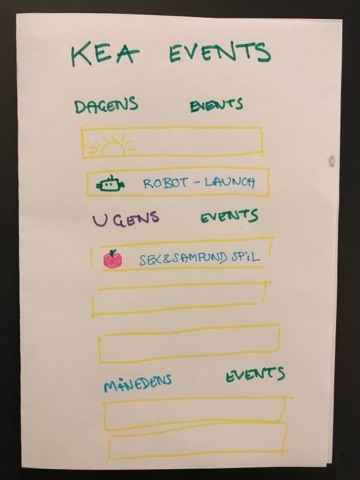 KEA EVENTS
DAGENS EVENTS
ROBOT - LAUNCH
UGENS EVENTS
SEX & SAMFUND SPIL
MÅNEDENS EVENTS